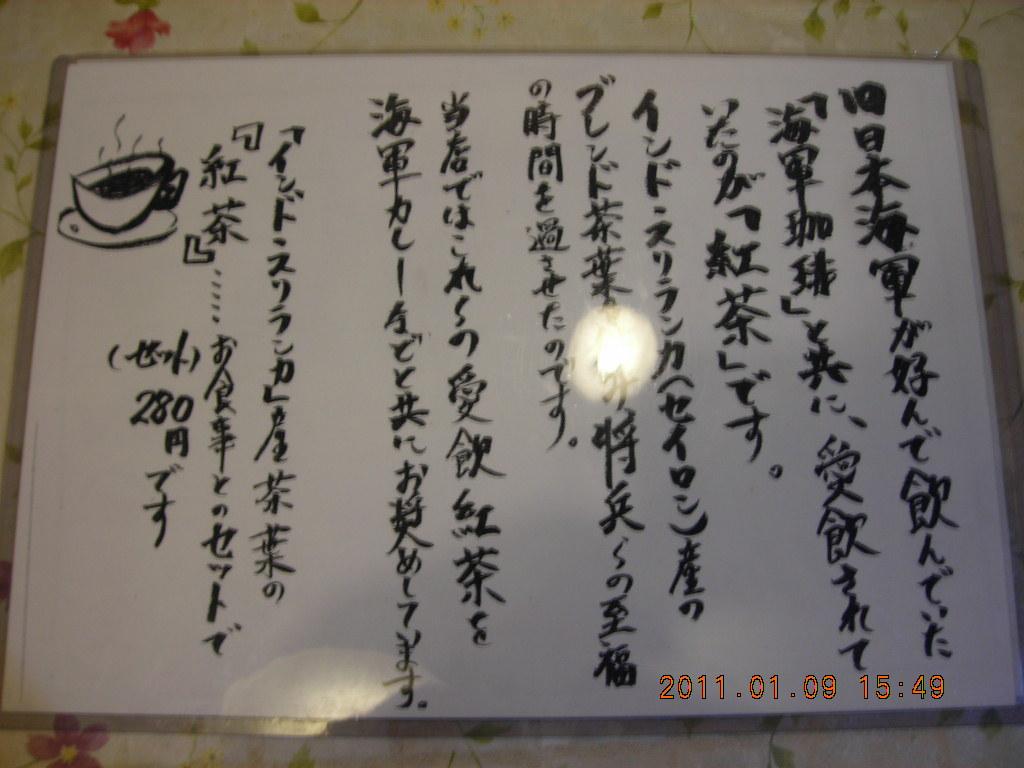 旧日本海軍が好んで飲んでいた
「海軍珈琲」と共に、愛飲されて
いたのが「紅茶」です。
インド・スリランカ(セイロン)産の
ブレンド茶葉 将兵らの至福
の時間を過させたのです。
当店ではこれらの愛飲紅茶を
海軍カレーなどと共にお奨めしてます。
「インド・スリランカ」産茶葉の
『紅茶』……お食事とのセットで
(セット)280円です
2011.01.09 15:49